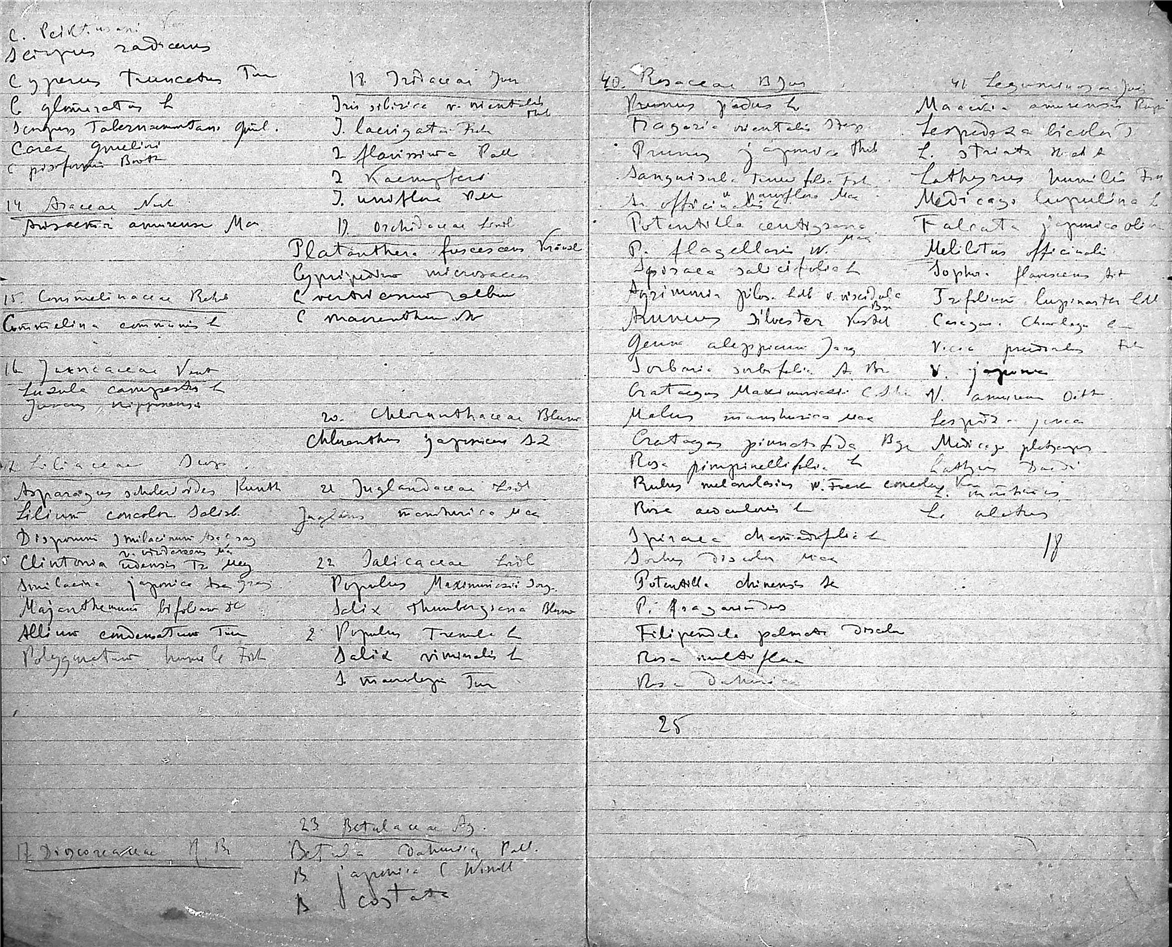 Scirpus radicans
Cyperus truncatus Tur
C glomeratus L
Scirpus Tabernaemontan. Gmel.
Carex gmelini
C pisiformis Boott
14 Araceae
Arisaema amurense Max
15 Commelinaceae
Commelina communis L
16 Juncaceae Vent
Luzula campestris L
Juncus nipponensis
Liliaceae
Asparagus schoberioides Kunth
Lilium concolor Salisb
Disporum smilacinum Asa Gray
Clintonia udensis Tr Mey
Smilacina japonica Asa Gray
Majanthemum bifolium DC
Allium condensatum Tur
Polygonatum humile Fish
17 Dioscoreaceae R. Br
18 Iridaceae Juss
Iris sibirica v. orientalis
Thb
I. laevigata Fish
I flavissima Pall
I Kaempferi
I. uniflora Pall
19 Orchidaceae Lindl
Platanthera fuscescens
Cypripedium
C ventricosum album
C macranthum Sw
20. Chloranthaceae Blume
Chloranthus japonicus SZ
21 Juglandaceae Lindl
Juglans manshurica Max
22 Salicaceae Lindl
Populus Maximowiczii
Salix thunbergiana Blume
2 Populus Tremula L
Salix viminalis L
S.
23 Betulaceae Ag.
Betula dahurica Pall.
B japonica
B costata
40. Rosaceae B Jus
Prunus padus L
Fragaria orientalis
Prunus japonica Thb
Sanguisorb. tenuifolia Fish
S. officinalis
Potentilla centigrana Max
P. flagellaris W.
Spiraea salicifolia L
Agrimonia pilosa Ldb v. viscidula Bge
Aruncus silvester Kostel
Geum aleppicum Jacq
Sorbaria sorbifolia A. Br.
Crataegus Maximowiczii C. Sch
Malus manshurica Max
Crataegus pinnatifida Bge
Rosa pimpinellifolia L
Rubus melanolasius
Rosa acicularis L
Spiraea chamaedryfolia L
Sorbus discolor Max
Potentilla chinensis Se
P. fragarioides
Filipendula palmata
Rosa multiflora
Rosa dahurica
25
41 Leguminosae Jus
Maackia amurensis Rupr
Lespedeza bicolor T
L. striata H et A
Lathyrus humilis Fisch
Medicago lupulina L
Falcata japonica Oliv
Melilotus officinalis
Sophor. flavescens Ait
Trifolium Lupinaster L
Caragan. Chamlagu L
Vicia Fish
V. japonica
V. amurensis Oett
Lespede. juncea
Medicago platycarpos
Lathyrus Davidi
L. alatus
18